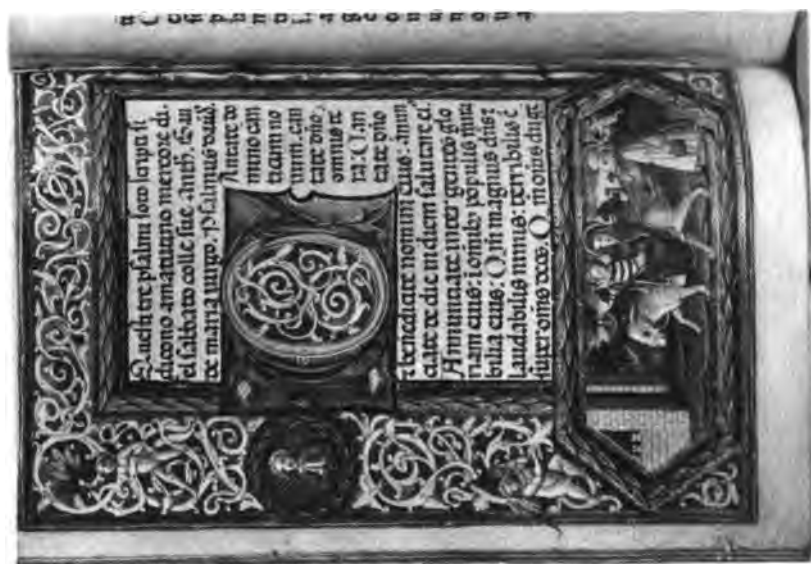 Questi tre psalmi soto scripti si
dicono a matutino mercore di
el sabbato colle sue
de maria uirgo. Psalmus dauid.
Antate do
mino can
ticum no
uum. can
tate dño,
omnis te
ra: Can
tate dño
& benedicite nomini eius: annun
ciate de die in diem salutare ei'.
Annuntiate inter gentes glo
riam eius: i omnib' populis mira
bilia eius: Qm̄ magnus dñs ⁊
laudabilis nimis: terribilis ē
super om̄s deos. Qm̄ om̄s dii gt